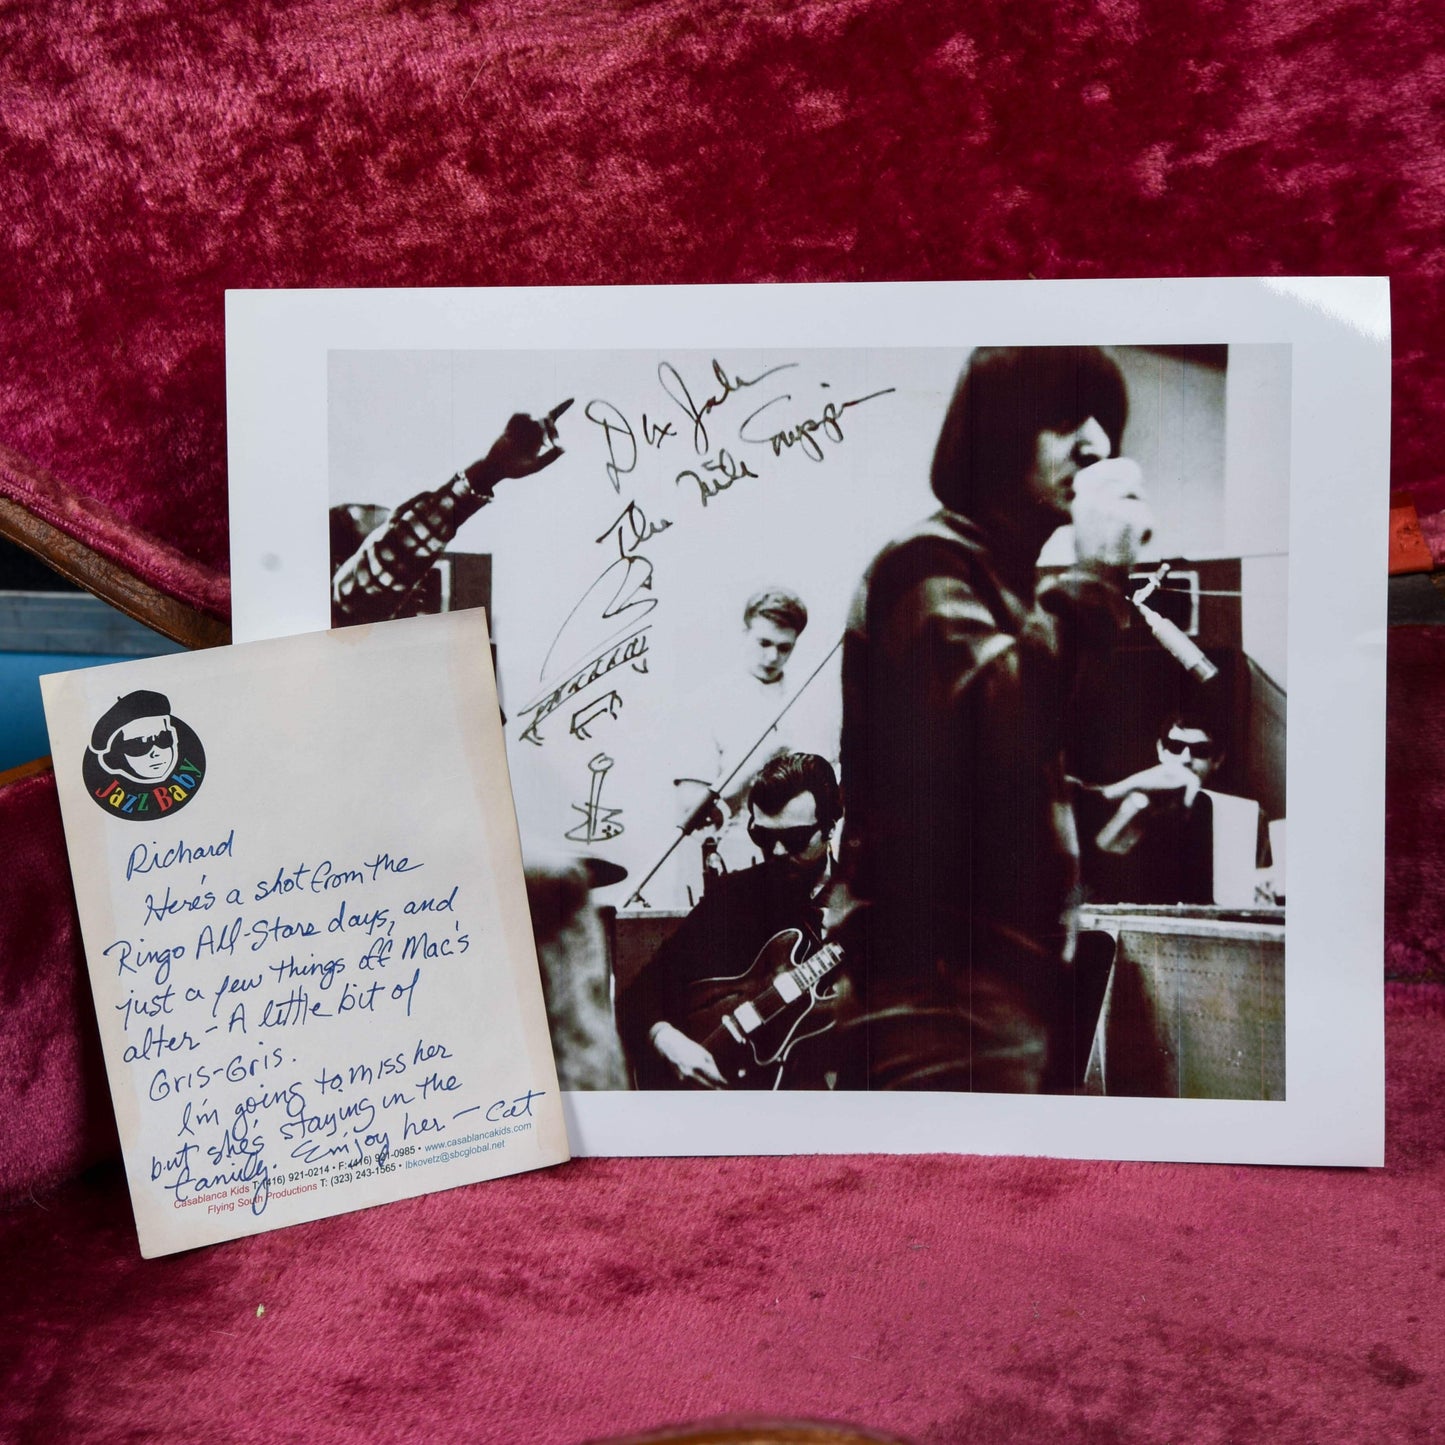 Jazz Baby
Richard
Here's a shot from the
Ringo All-Starz days, and
just a few things off Mac's
alter - A little bit of
Gris-Gris.
I'm going to miss her
but she's staying in the
family. Enjoy her - Cat
Casablanca Kids T: (416) 921-0214 • F: (416) 921-0985 • www.casablancakids.com
Flying South Productions T: (323) 243-1565 • lbkovetz@sbcglobal.net
The Nite Tripper